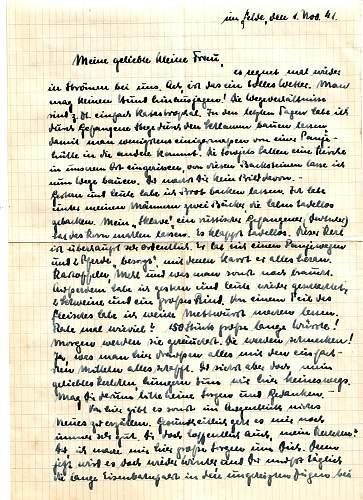 im Felde, den 1. Nov. 41.
Meine geliebte kleine Frau,
es regnet mal wieder
in Strömen bei uns. Ach, ist das ein tolles Wetter. Man
mag keinen Hund hinausjagen! Die Wegeverhältnisse
sind z. Zt. einfach katastrophal. In den letzten Tagen habe ich
durch Gefangene Stege durch den Schlamm bauen lassen
damit man wenigstens einigermaßen von einer Panje-
hütte in die andere kommt. Die Sowjets hatten eine Kirche
in unserem Ort eingerissen, von diesen Backsteinen lasse ich
nun Wege bauen. Da machst Du kein Bild davon. -
Gestern und heute habe ich Brot backen lassen. Ich habe
unter meinen Männern zwei Bäcker die haben tadellos
gebacken. Mein "Sklave", ein russischer Gefangener,
hat das Korn mahlen lassen. Es klappt tadellos. Dieser Kerl
ist überhaupt sehr ordentlich. Er hat mir einen Panjewagen
und 2 Pferde "besorgt", mit denen karrt er alles heran.
Kartoffeln, Mehl und was man sonst noch braucht.
Außerdem habe ich gestern und heute wieder geschlachtet,
2 Schweine und ein großes Rind. Von einem Teil des
Fleisches habe ich wieder Mettwürste machen lassen.
Rate mal wieviel? 150 Stück große lange Würste!
Morgen werden sie geräuchert. Die werden schmecken!
Ja, was man hier draußen alles mit den einfach-
sten Mitteln alles schafft. Du siehst aber doch mein
geliebtes Herzchen, hungern tun wir hier keineswegs.
Mag Du darum bitte keine Sorgen und Gedanken. -
Von hier gibt es sonst im Augenblick nichts
Neues zu erzählen. Gesundheitlich geht es mir noch
immer sehr gut. Dir doch hoffentlich auch, mein Herzchen?
Ach, ich mache mir hier große Sorgen um Dich. Denn
jetzt wird es doch wieder Winter und Du mußt täglich
die lange Eisenbahnfahrt in den ungeheizten Zügen bei